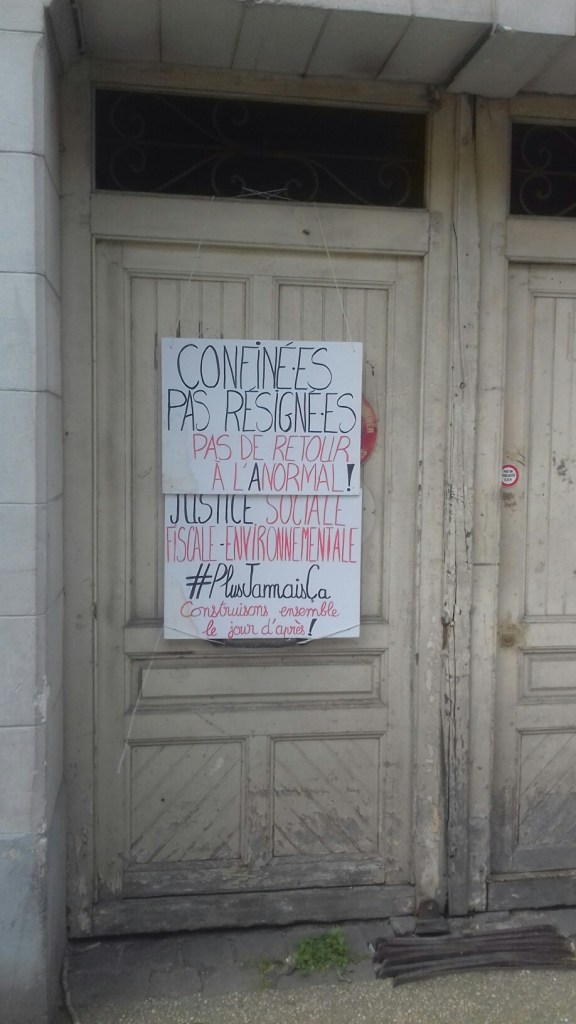 CONFINÉ·ES
PAS RÉSIGNÉ·ES
PAS DE RETOUR
À L'ANORMAL!
JUSTICE SOCIALE
FISCALE-ENVIRONNEMENTALE
#PlusJamaisÇa
Construisons ensemble
le jour d'après!